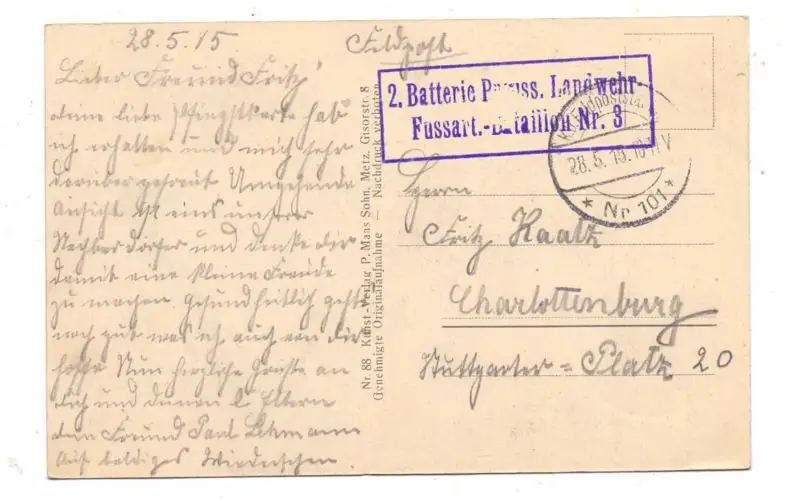 28.5.15
Lieber Freund Fritz!
deine liebe Pfingstkarte hab
ich erhalten und mich sehr
darüber gefreut Umgehende
Ansicht ist eins unserer
Nachbar Dörfer und denke dir
damit eine kleine Freude
zu machen. Gesundheitlich geht's
noch gut was ich auch von dir
hoffe Nun herzliche Grüße an
dich und deinen l Eltern
dein Freund Paul Lehmann
Auf baldiges Wiedersehen.
Nr. 88 Kunst-Verlag P. Maas Sohn, Metz, Gisorstr. 8
Genehmigte Originalaufnahme — Nachdruck verboten
Feldpost
2. Batterie Preuss. Landwehr-
Fussart.-Bataillon Nr. 3
28.5.15.10-11V
* Nr 101 *
Herrn
Fritz Kaatz
Charlottenburg
Stuttgarter=Platz 20